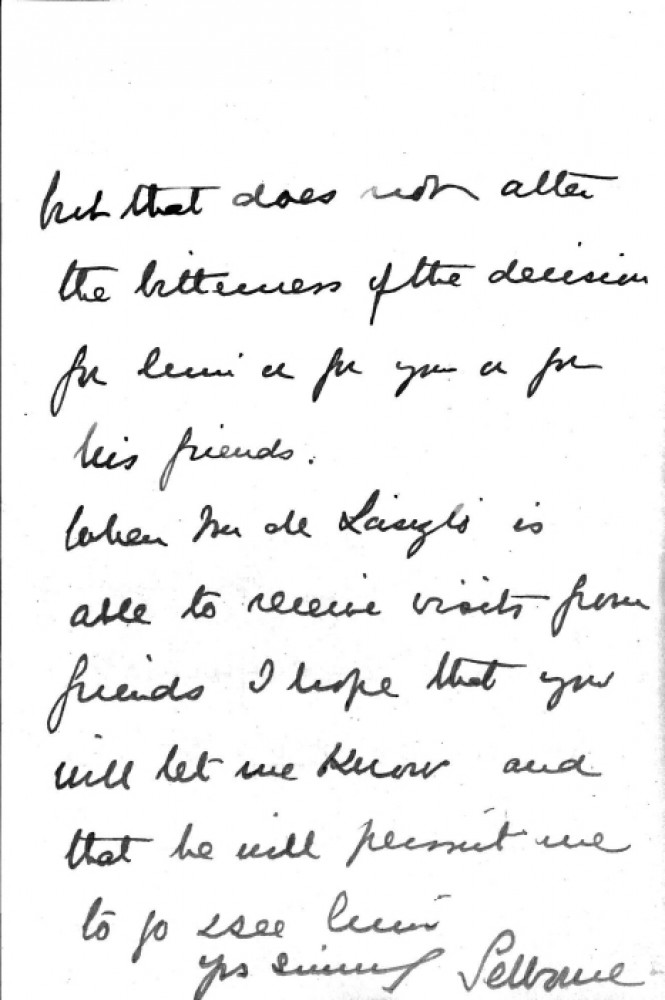 but that does not alter
the bitterness of the decision
for him & for you & for
his friends.
When Mr de László is
able to receive visits from
friends I hope that you
will let me know and
that he will permit me
to go & see him
yrs sincerely Selborne